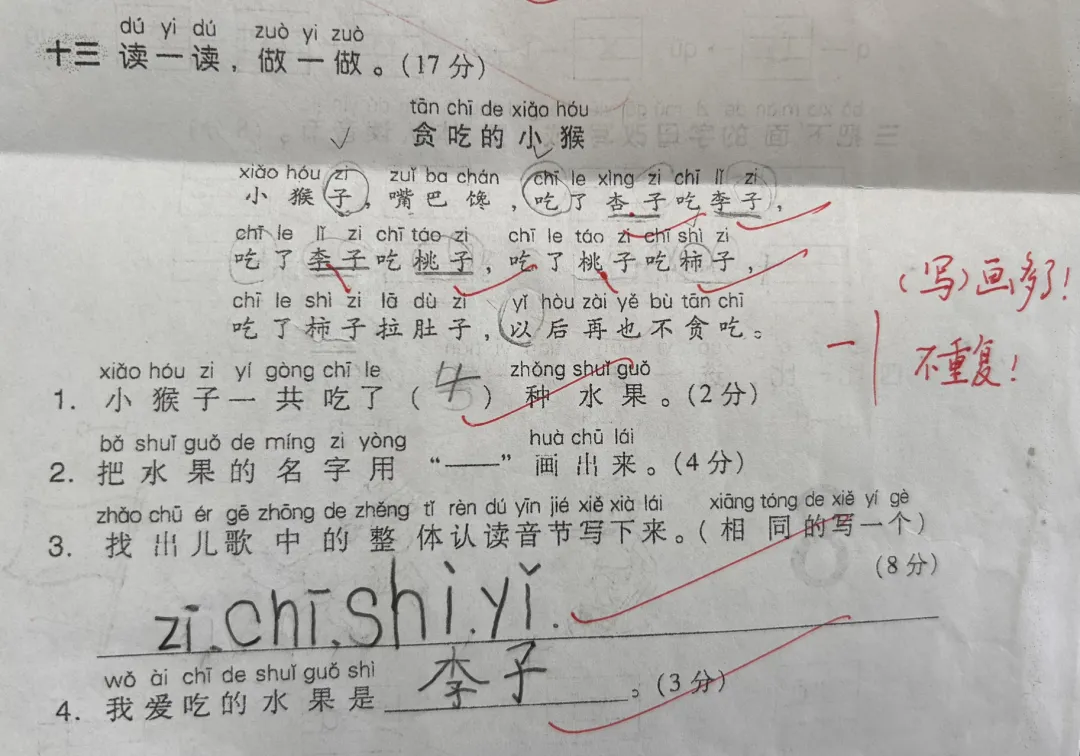 dú yi dú zuò yi zuò
十三 读一读，做一做。(17分)
tān chī de xiǎo hóu
贪吃的小猴
xiǎo hóu zi zuǐ ba chán chī le xìng zi chī lǐ zi
小猴子，嘴巴馋，吃了杏子吃李子，
chī le lǐ zi chī táo zi chī le táo zi chī shì zi
吃了李子吃桃子，吃了桃子吃柿子，
chī le shì zi lā dù zi yǐ hòu zài yě bù tān chī
吃了柿子拉肚子，以后再也不贪吃。
(写)画多了！
一 不重复！
xiǎo hóu zi yí gòng chī le zhǒng shuǐ guǒ
1. 小猴子一共吃了（4）种水果。(2分)
bǎ shuǐ guǒ de míng zi yòng huà chū lái
2. 把水果的名字用“——”画出来。(4分)
zhǎo chū ér gē zhōng de zhěng tǐ rèn dú yīn jié xiě xià lái xiāng tóng de xiě yí gè
3. 找出儿歌中的整体认读音节写下来。(相同的写一个)
(8分)
zī.chī.shì.yǐ.
wǒ ài chī de shuǐ guǒ shì
4. 我爱吃的水果是李子。(3分)